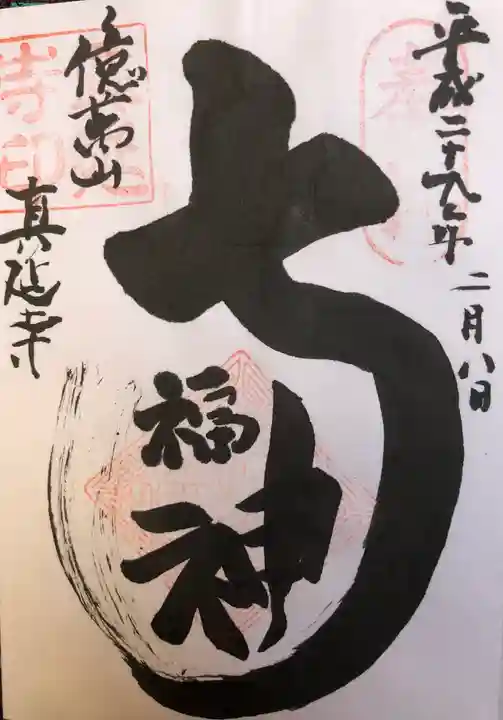 平成二十九年 二月八日
七福神
億萬山
真延寺
寺印